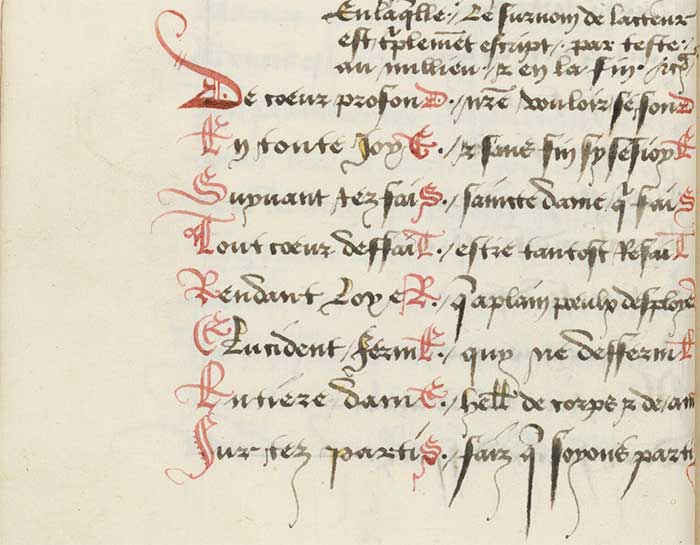 En laq̄lle / Le surnom de lacteur
est tp̄lemēt escript / par teste
au millieu / z en la fin.
De coeur profonD / nr̄e vouloir se fonD
En toute JoyE / z sans fin sy sesioyE
Suyuant tez faiS / saincte dame q̄ faiS
Tout coeur deffaiT / estre tantost RefaiT
Rendant LoyeR / q̄ aplain poeulx desploye
ELucident fermE / quy ne deffermE
Entiere damE / bell de corps z de am
Sur tez partiS / faiz q̄ soyons parti